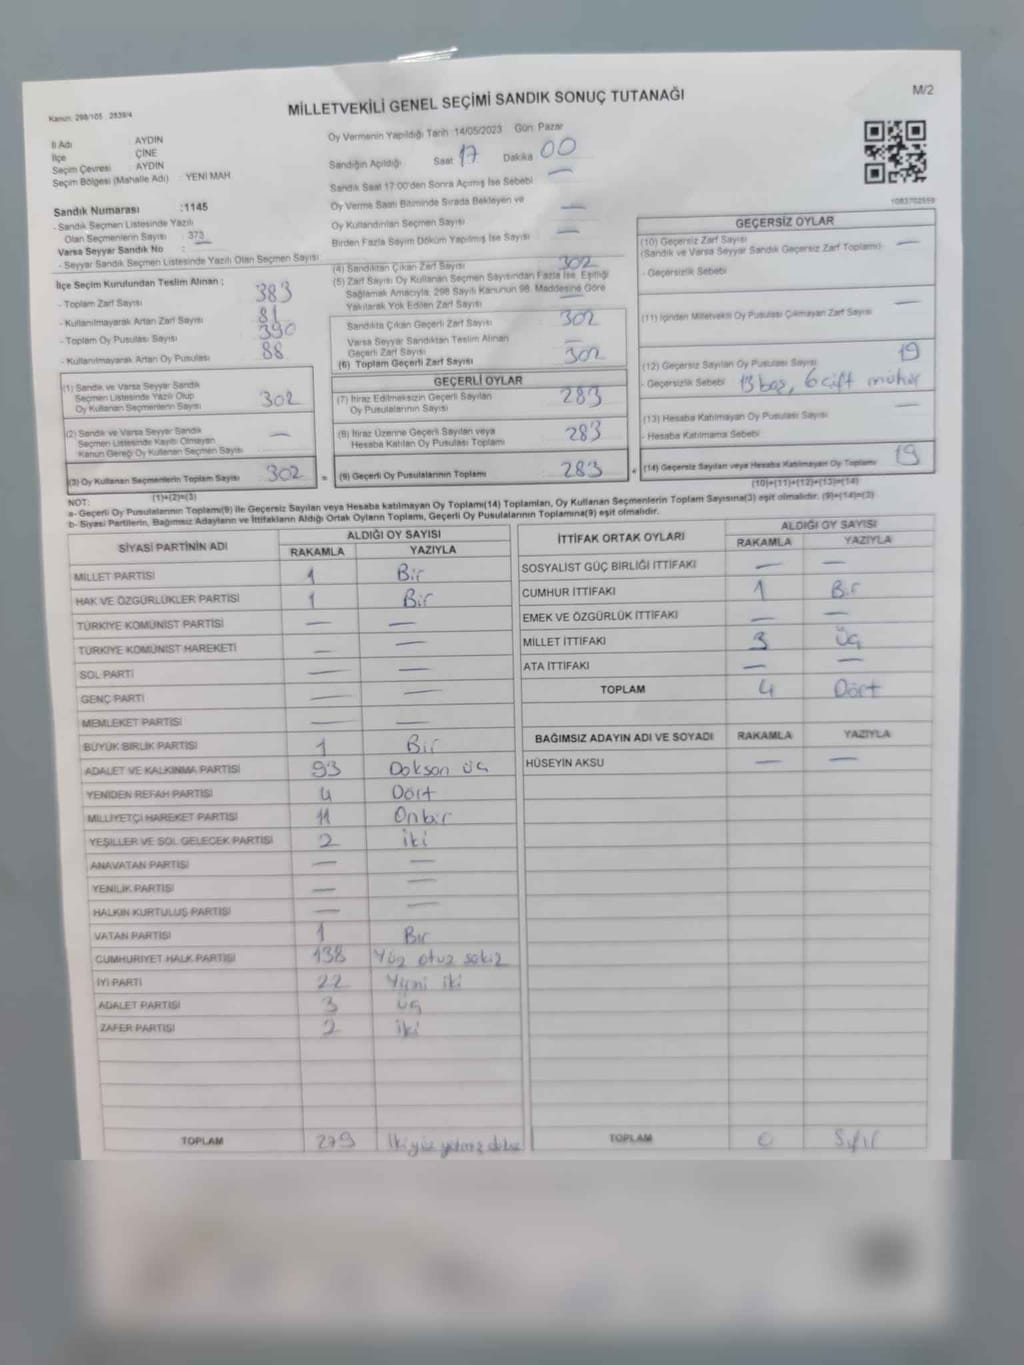 MİLLETVEKİLİ GENEL SEÇİMİ SANDIK SONUÇ TUTANAĞI
M/2
Kanun: 298/105 - 2839/4
İl Adı : AYDIN
İlçe : ÇİNE
Seçim Çevresi : AYDIN
Seçim Bölgesi (Mahalle Adı) : YENİ MAH.
Oy Vermenin Yapıldığı Tarih :14/05/2023 Gün: Pazar
Sandığın Açıldığı Saat 17 Dakika 00
Sandık Saat 17:00'den Sonra Açılmış İse Sebebi —
Oy Verme Saati Bitiminde Sırada Bekleyen ve
Oy Kullandırılan Seçmen Sayısı —
Birden Fazla Sayım Döküm Yapılmış İse Sayısı —
1083702559
Sandık Numarası :1145
- Sandık Seçmen Listesinde Yazılı
Olan Seçmenlerin Sayısı : 373
Varsa Seyyar Sandık No :
- Seyyar Sandık Seçmen Listesinde Yazılı Olan Seçmen Sayısı
İlçe Seçim Kurulundan Teslim Alınan :
- Toplam Zarf Sayısı 383
- Kullanılmayarak Artan Zarf Sayısı 81
- Toplam Oy Pusulası Sayısı 390
- Kullanılmayarak Artan Oy Pusulası 88
(1) Sandık ve Varsa Seyyar Sandık
Seçmen Listesinde Yazılı Olup
Oy Kullanan Seçmenlerin Sayısı 302
(2) Sandık ve Varsa Seyyar Sandık
Seçmen Listesinde Kayıtlı Olmayan
Kanun Gereği Oy Kullanan Seçmen Sayısı —
(3) Oy Kullanan Seçmenlerin Toplam Sayısı 302
(1)+(2)=(3)
(4) Sandıktan Çıkan Zarf Sayısı 302
(5) Zarf Sayısı Oy Kullanan Seçmen Sayısından Fazla İse, Eşitliği
Sağlamak Amacıyla, 298 Sayılı Kanunun 98. Maddesine Göre
Yakılarak Yok Edilen Zarf Sayısı —
Sandıkta Çıkan Geçerli Zarf Sayısı 302
Varsa Seyyar Sandıktan Teslim Alınan
Geçerli Zarf Sayısı —
(6) Toplam Geçerli Zarf Sayısı 302
GEÇERLİ OYLAR
(7) İtiraz Edilmeksizin Geçerli Sayılan
Oy Pusulalarının Sayısı 283
(8) İtiraz Üzerine Geçerli Sayılan veya
Hesaba Katılan Oy Pusulası Toplamı 283
= (9) Geçerli Oy Pusulalarının Toplamı 283 +
GEÇERSİZ OYLAR
(10) Geçersiz Zarf Sayısı —
(Sandık ve Varsa Seyyar Sandık Geçersiz Zarf Toplamı)
- Geçersizlik Sebebi
(11) İçinden Milletvekili Oy Pusulası Çıkmayan Zarf Sayısı —
(12) Geçersiz Sayılan Oy Pusulası Sayısı 19
- Geçersizlik Sebebi 13 boş, 6 çift mühür
(13) Hesaba Katılmayan Oy Pusulası Sayısı —
- Hesaba Katılmama Sebebi
(14) Geçersiz Sayılan veya Hesaba Katılmayan Oy Toplamı 19
(10)+(11)+(12)+(13)=(14)
NOT:
a- Geçerli Oy Pusulalarının Toplamı(9) ile Geçersiz Sayılan veya Hesaba katılmayan Oy Toplamı(14) Toplamları, Oy Kullanan Seçmenlerin Toplam Sayısına(3) eşit olmalıdır. (9)+(14)=(3)
b- Siyasi Partilerin, Bağımsız Adayların ve İttifakların Aldığı Oyların Toplamı, Geçerli Oy Pusulalarının Toplamına(9) eşit olmalıdır.
SİYASİ PARTİNİN ADI ALDIĞI OY SAYISI
RAKAMLA YAZIYLA
MİLLET PARTİSİ 1 Bir
HAK VE ÖZGÜRLÜKLER PARTİSİ 1 Bir
TÜRKİYE KOMÜNİST PARTİSİ — —
TÜRKİYE KOMÜNİST HAREKETİ — —
SOL PARTİ — —
GENÇ PARTİ — —
MEMLEKET PARTİSİ — —
BÜYÜK BİRLİK PARTİSİ 1 Bir
ADALET VE KALKINMA PARTİSİ 93 Doksan üç
YENİDEN REFAH PARTİSİ 4 Dört
MİLLİYETÇİ HAREKET PARTİSİ 11 Onbir
YEŞİLLER VE SOL GELECEK PARTİSİ 2 iki
ANAVATAN PARTİSİ — —
YENİLİK PARTİSİ — —
HALKIN KURTULUŞ PARTİSİ — —
VATAN PARTİSİ 1 Bir
CUMHURİYET HALK PARTİSİ 138 Yüz otuz sekiz
İYİ PARTİ 22 Yirmi iki
ADALET PARTİSİ 3 üç
ZAFER PARTİSİ 2 iki
TOPLAM 279 İkiyüz yetmiş
İTTİFAK ORTAK OYLARI ALDIĞI OY SAYISI
RAKAMLA YAZIYLA
SOSYALİST GÜÇ BİRLİĞİ İTTİFAKI — —
CUMHUR İTTİFAKI 1 Bir
EMEK VE ÖZGÜRLÜK İTTİFAKI — —
MİLLET İTTİFAKI 3 Üç
ATA İTTİFAKI — —
TOPLAM 4 Dört
BAĞIMSIZ ADAYIN ADI VE SOYADI RAKAMLA YAZIYLA
HÜSEYİN AKSU — —
TOPLAM 0 Sıfır